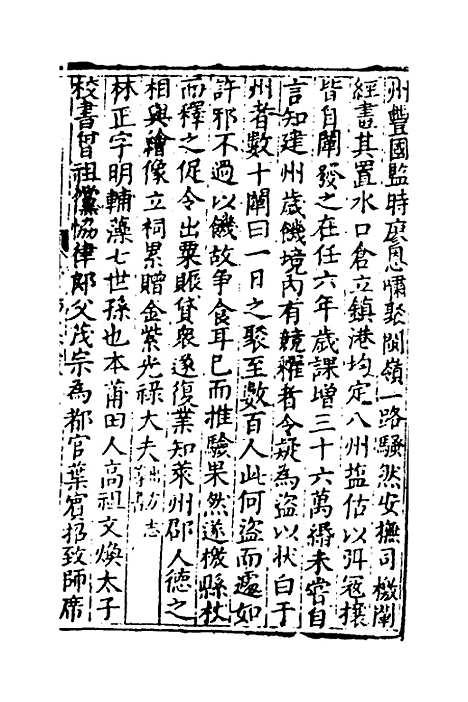 州豐國監時廖恩嘯聚閩嶺一路騷然安撫司檄闡
經畫其置水口倉立鎮港均定八州盐估以弭寇攘
皆自闡發之在任六年歲課增三十六萬緡未嘗自
言知建州歲饑境内有競糴者令疑為盜以狀白于
州者數十闡曰一日之聚至數百人此何盜而遽如
許邪不過以饑故争食耳已而推驗果然遂檄縣杖
而釋之促令出粟賑貸衆遂復業知萊州郡人德之
相與繪像立祠累贈金紫光祿大夫
林正字明輔藻七世孫也本莆田人高祖文煥太子
校書曾祖儻協律郎父茂宗為都官葉賓招致師席